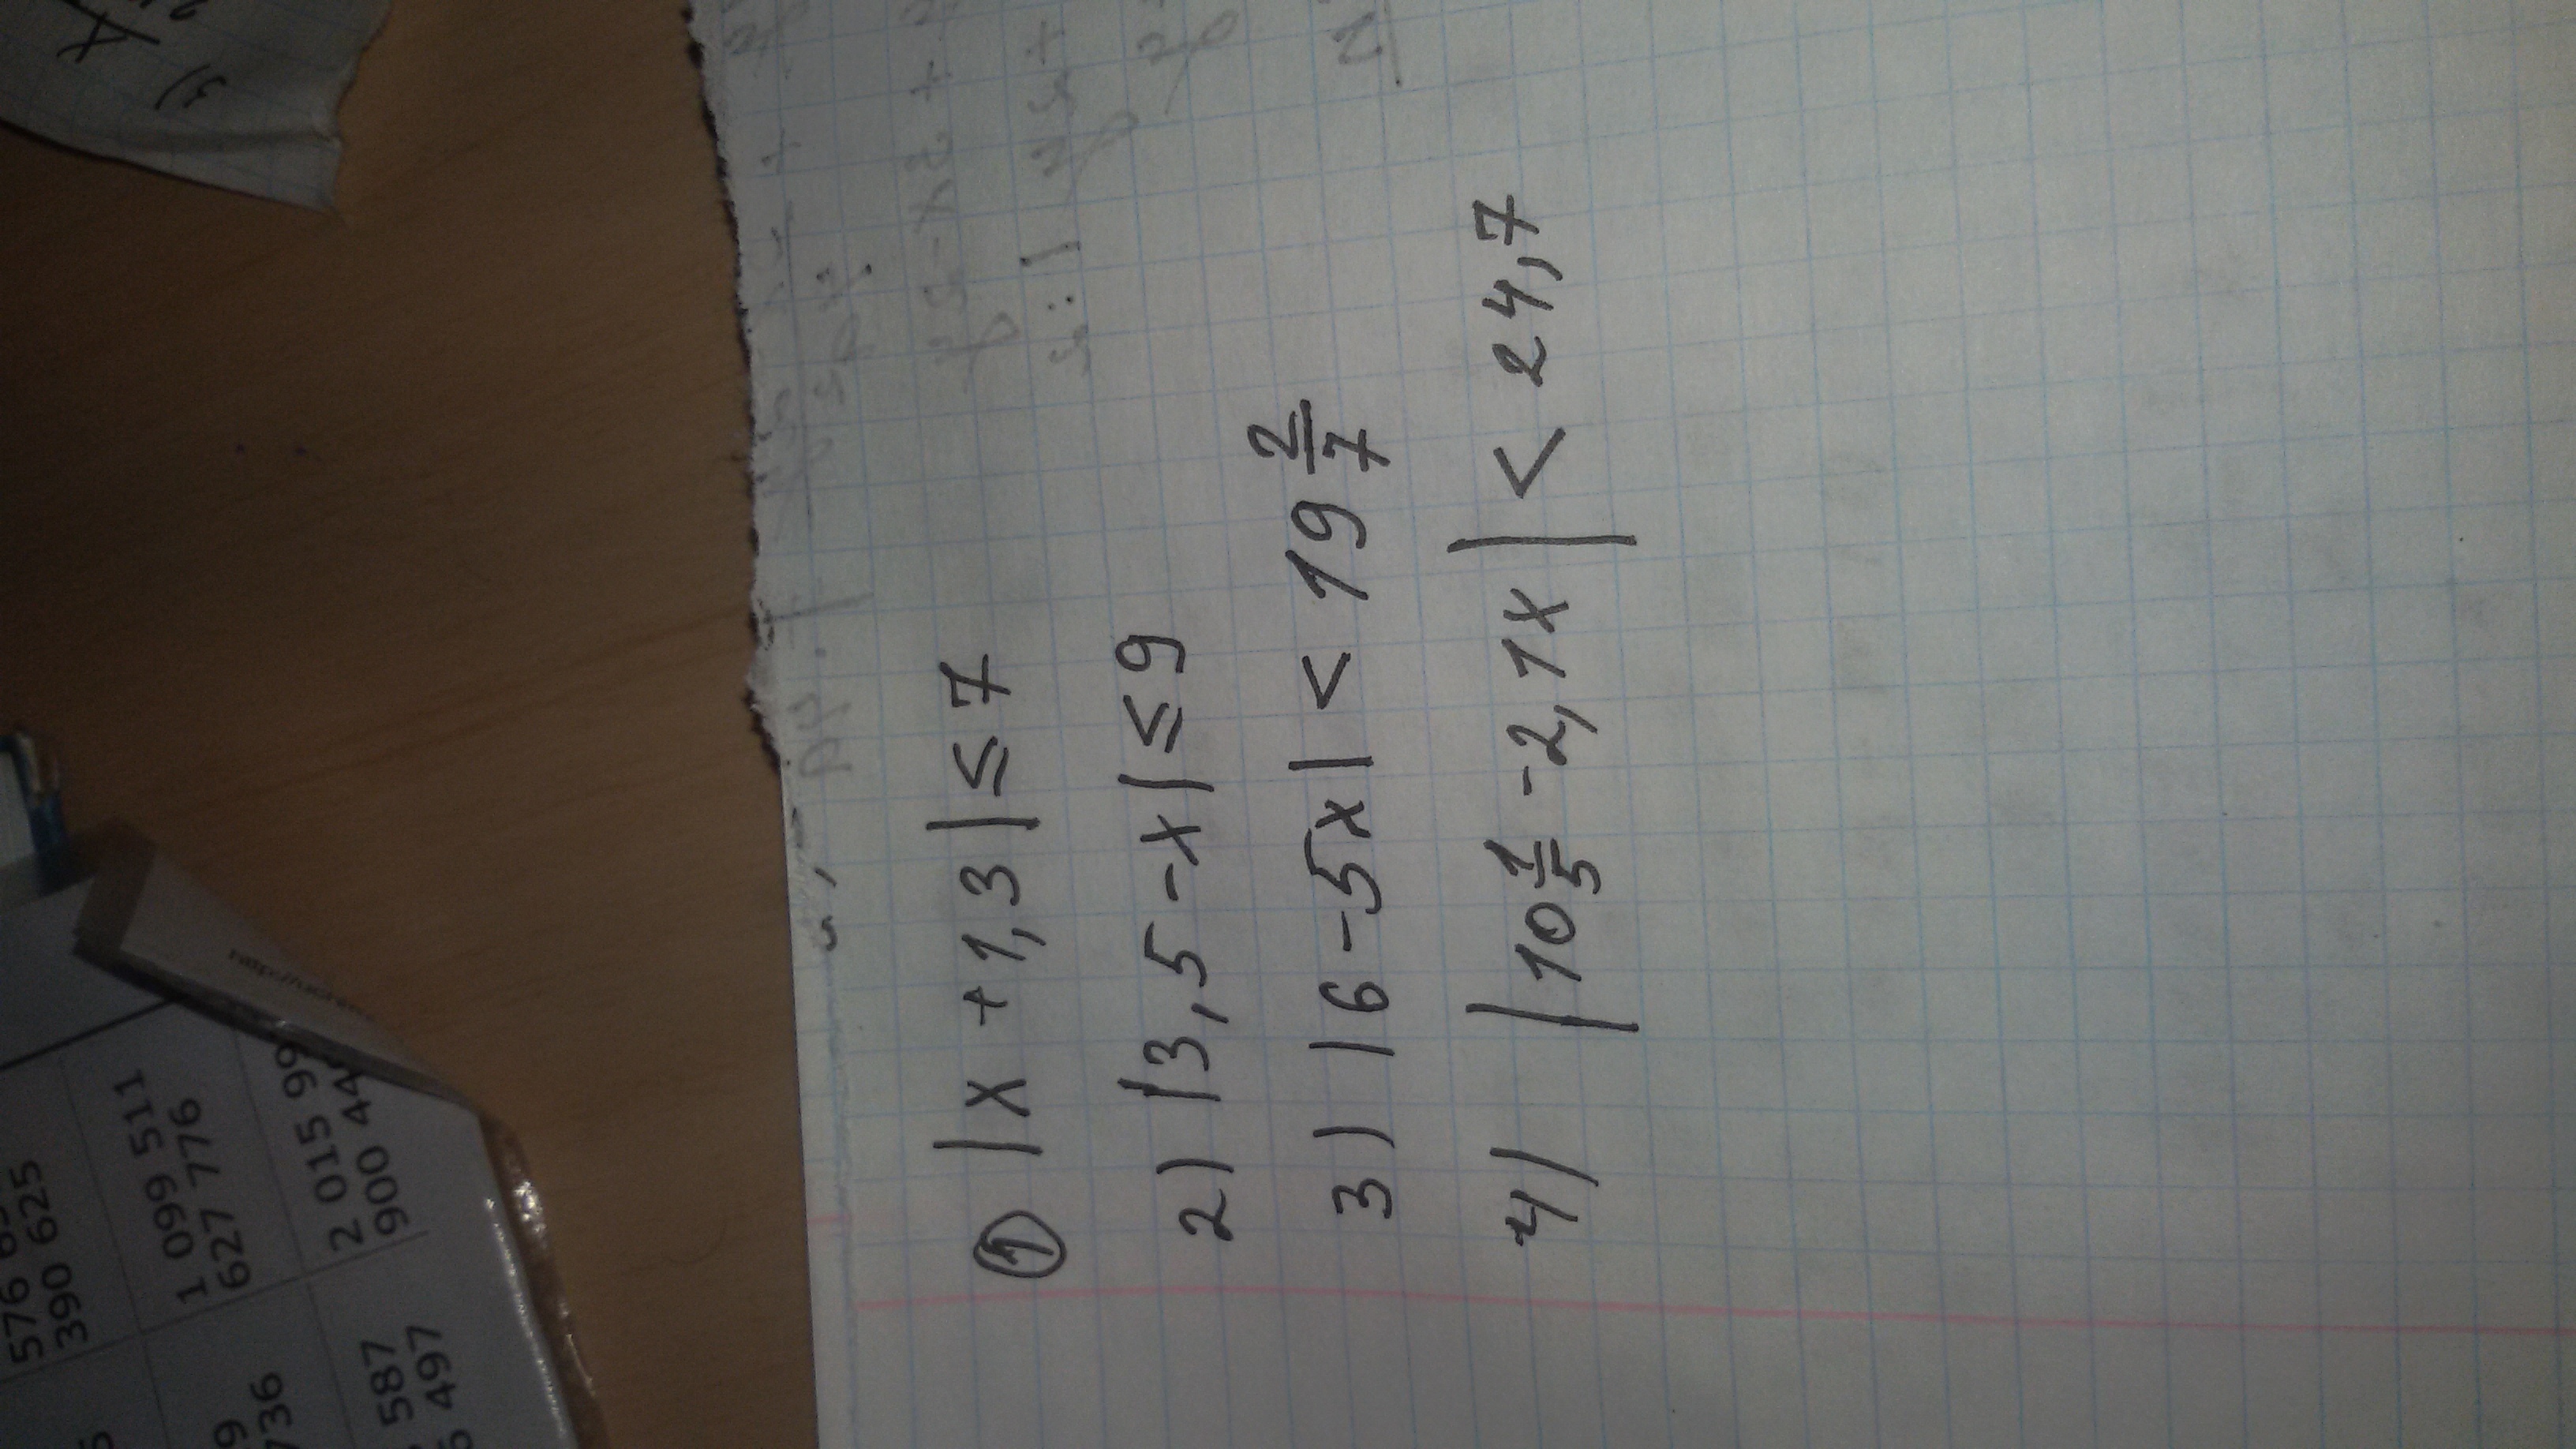 ① |x + 1,3| ≤ 7
2) |3,5 - x| ≤ 9
3) |6 - 5x| < 19 2/7
4) |10 1/5 - 2,1x| < 24,7
390 625
1 099 511
627 776
2 015 99
900 44
736
587
497
3)